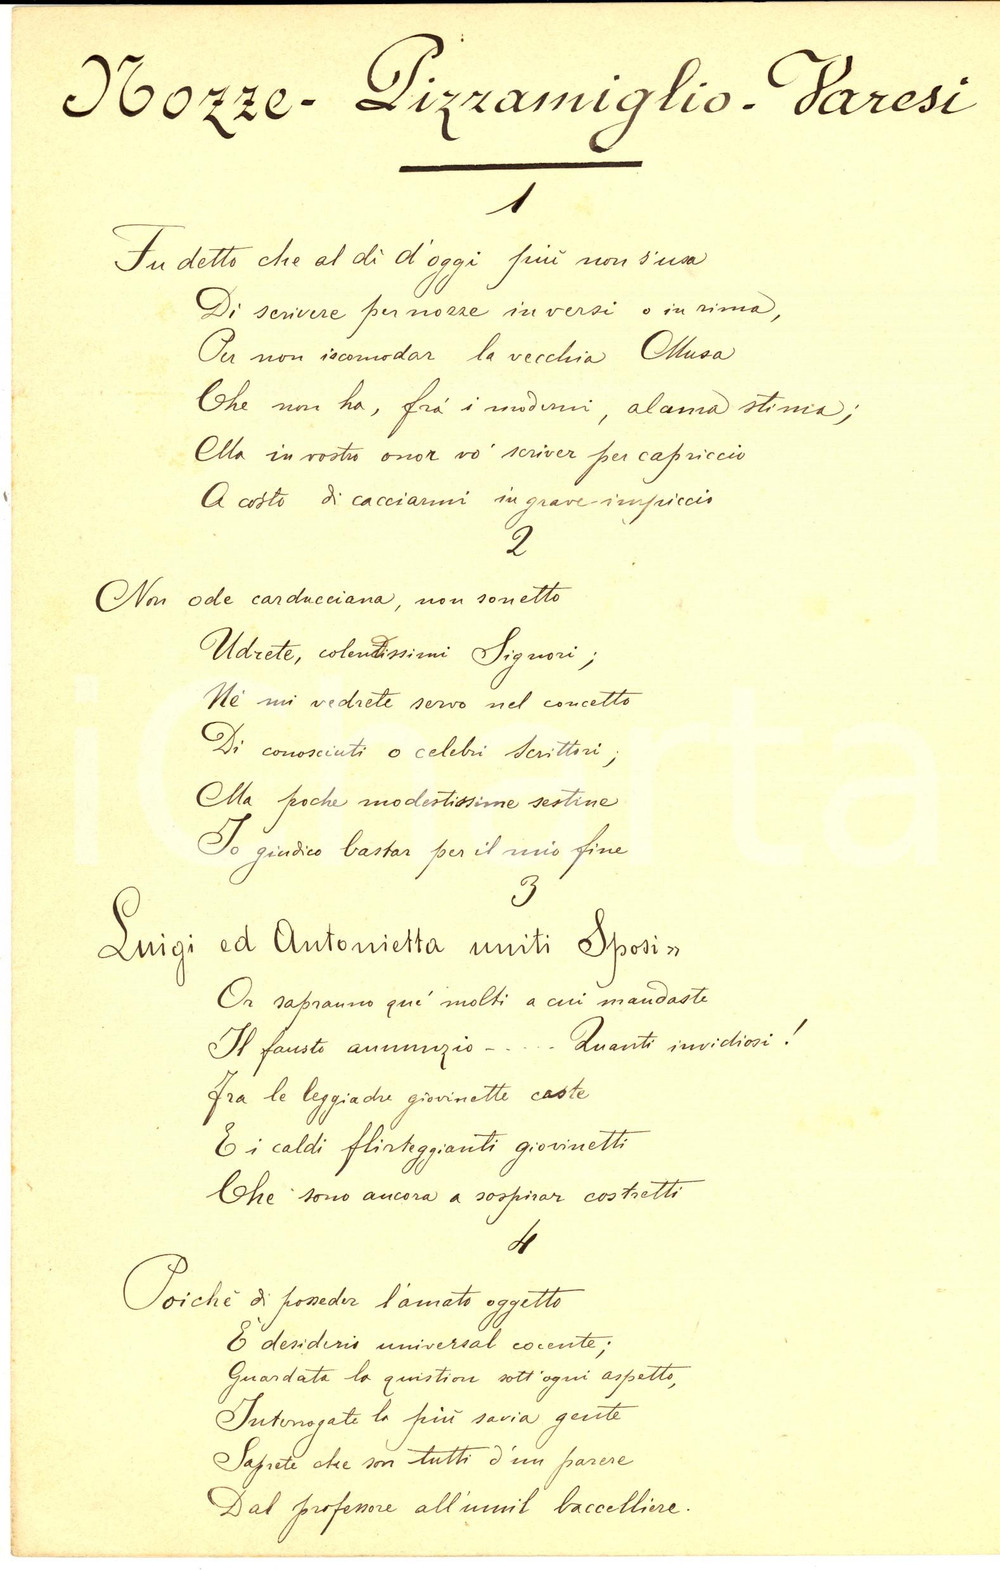 Nozze - Pizzamiglio - Varesi
1
Fu detto che al dì d'oggi più non s'usa
Di scrivere per nozze in versi o in rima,
Per non iscomodar la vecchia Musa
Che non ha, frà i moderni, alcuna stima;
Ma in vostro onor vo' scriver per capriccio
A costo di cacciarmi in grave impiccio
2
Non ode carducciana, non sonetto
Udrete, colendissimi Signori;
Nè mi vedrete servo nel concetto
Di conosciuti o celebri Scrittori;
Ma poche modestissime sestine
Io giudico bastar per il mio fine
3
Luigi ed Antonietta uniti Sposi»
Or sapranno que' molti a cui mandaste
Il fausto annunzio - . . . . Quanti invidiosi!
Fra le leggiadre giovinette caste
E i caldi flirteggianti giovinetti
Che sono ancora a sospirar costretti
4
Poichè di posseder l'amato oggetto
È desiderio universal cocente;
Guardata la quistion sott'ogni aspetto,
Interrogate la più savia gente
Saprete che son tutti d'un parere
Dal professore all'umil baccelliere.